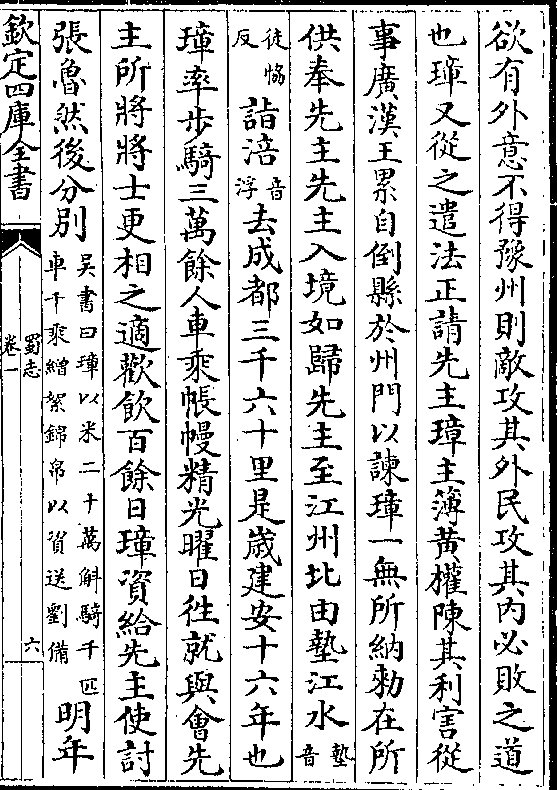 欲有外意不得豫州則敵攻其外民攻其内必敗之道
也璋又從之遣法正請先主璋主簿黄權陳其利害從
事廣漢王累自倒縣於州門以諫璋一無所納勑在所
供奉先主先主入境如歸先主至江州北由墊江水墊音
徒恊反詣涪音浮去成都三千六十里是嵗建安十六年也
璋率步騎三萬餘人車乘帳幔精光曜日徃就與會先
主所將將士更相之適歡飲百餘日璋資給先主使討
張魯然後分别吳書曰璋以米二十萬斛騎千匹車千乘繒絮錦帛以資送劉備明年
欽定四庫全書
蜀志
卷一
六